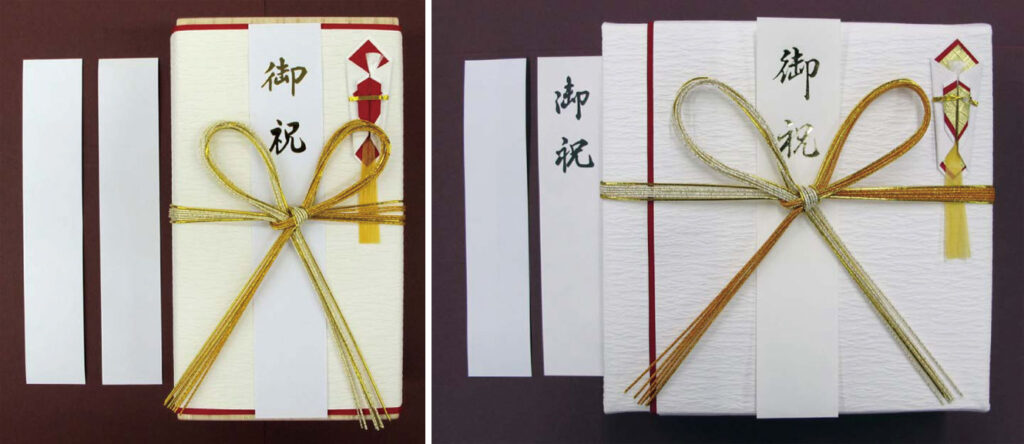 御祝
御祝
御祝